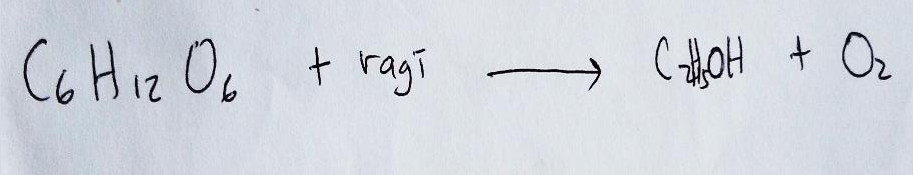 C₆H₁₂O₆ + ragi → C₂H₅OH + O₂